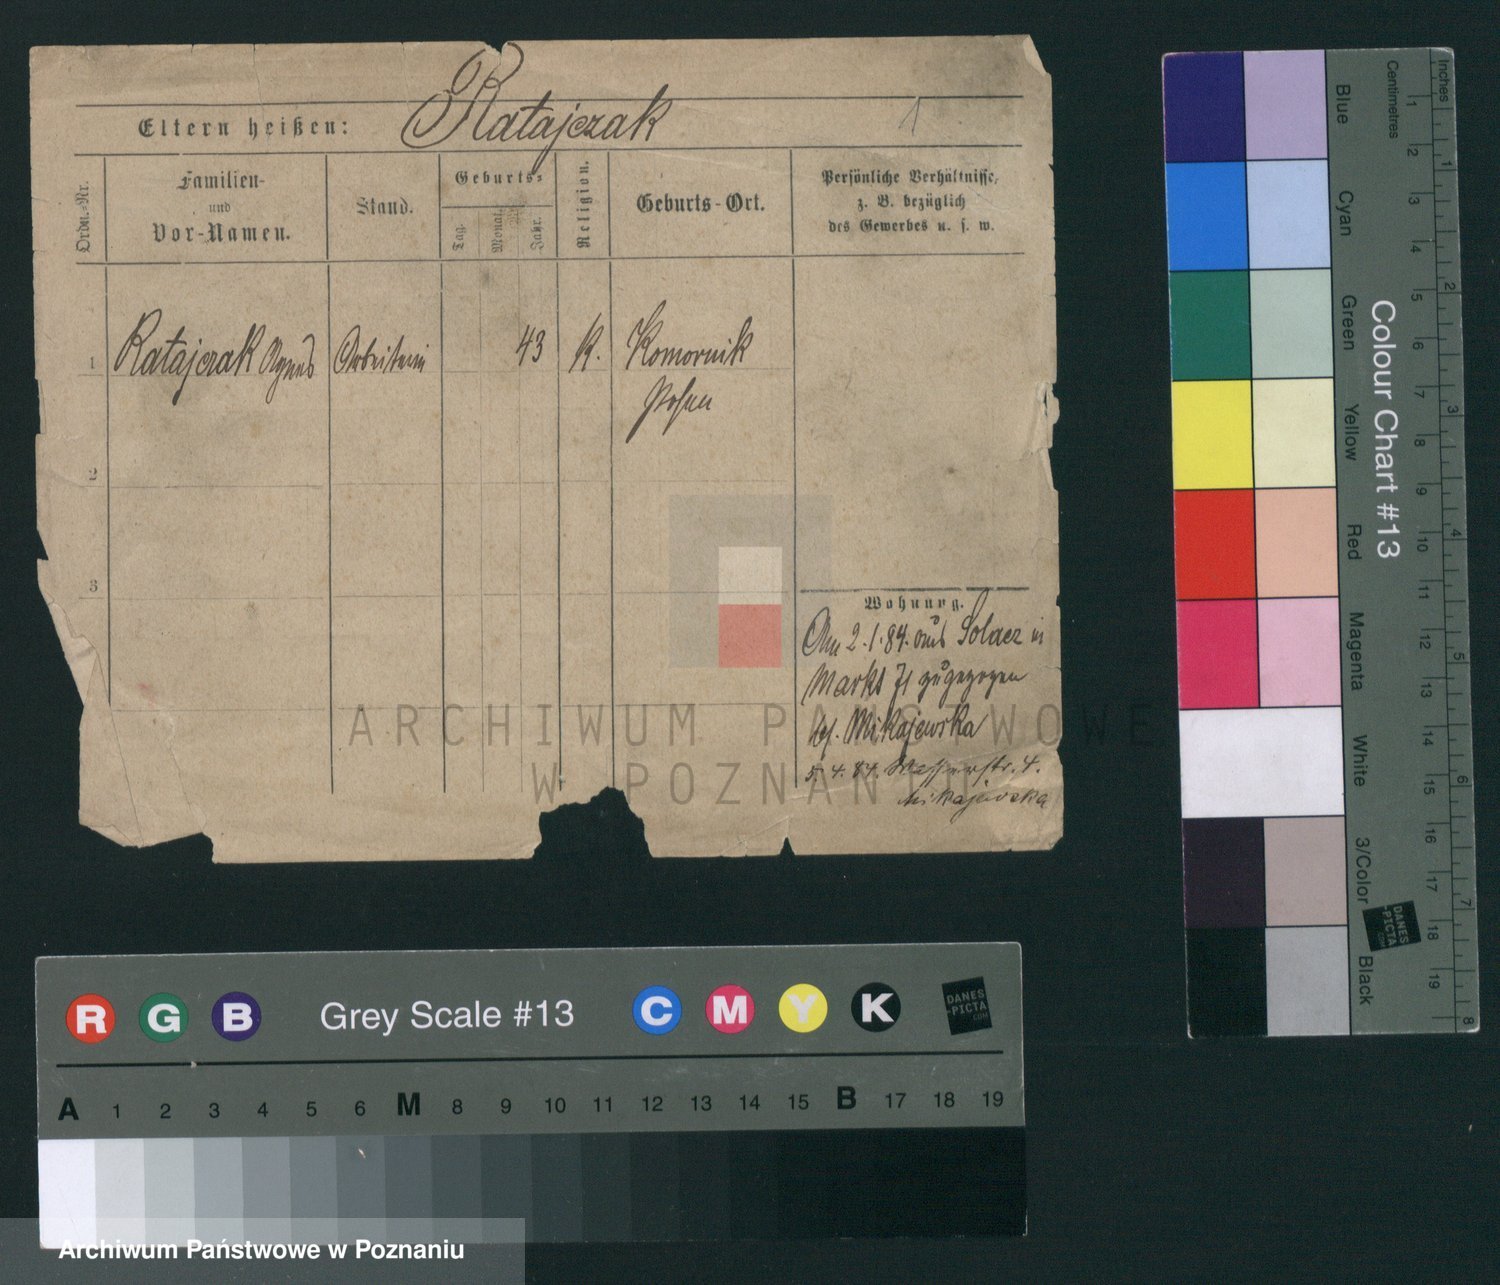 Ratajczak
Eltern heißen:
1
Ordn.=Nr.
Familien-
und
Vor-Namen.
Stand.
Geburts=
Tag.
Monat.
Jahr.
Religion.
Geburts-Ort.
Persönliche Verhältnisse,
z. B. bezüglich
des Gewerbes u. s. w.
1 Ratajczak Agnes Arbeiterin 43 K. Komornik
Posen
2
3
Wohnung.
Am 2.1.84. aus Solacz in
Markt 71 zugezogen
bei Mikajewska
5.4.84. Wasserstr. 4.
Mikajewska
ARCHIWUM PAŃSTWOWE
W POZNANIU
Blue
Cyan
Green
Yellow
Red
Magenta
White
3/Color
Black
Colour Chart #13
Centimetres
Inches
1 2 3 4 5 6 7 8 9 10 11 12 13 14 15 16 17 18 19
1 2 3 4 5 6 7 8
DANES
-PICTA
.COM
R G B Grey Scale #13 C M Y K
DANES
-PICTA
.COM
A 1 2 3 4 5 6 M 8 9 10 11 12 13 14 15 B 17 18 19
Archiwum Państwowe w Poznaniu